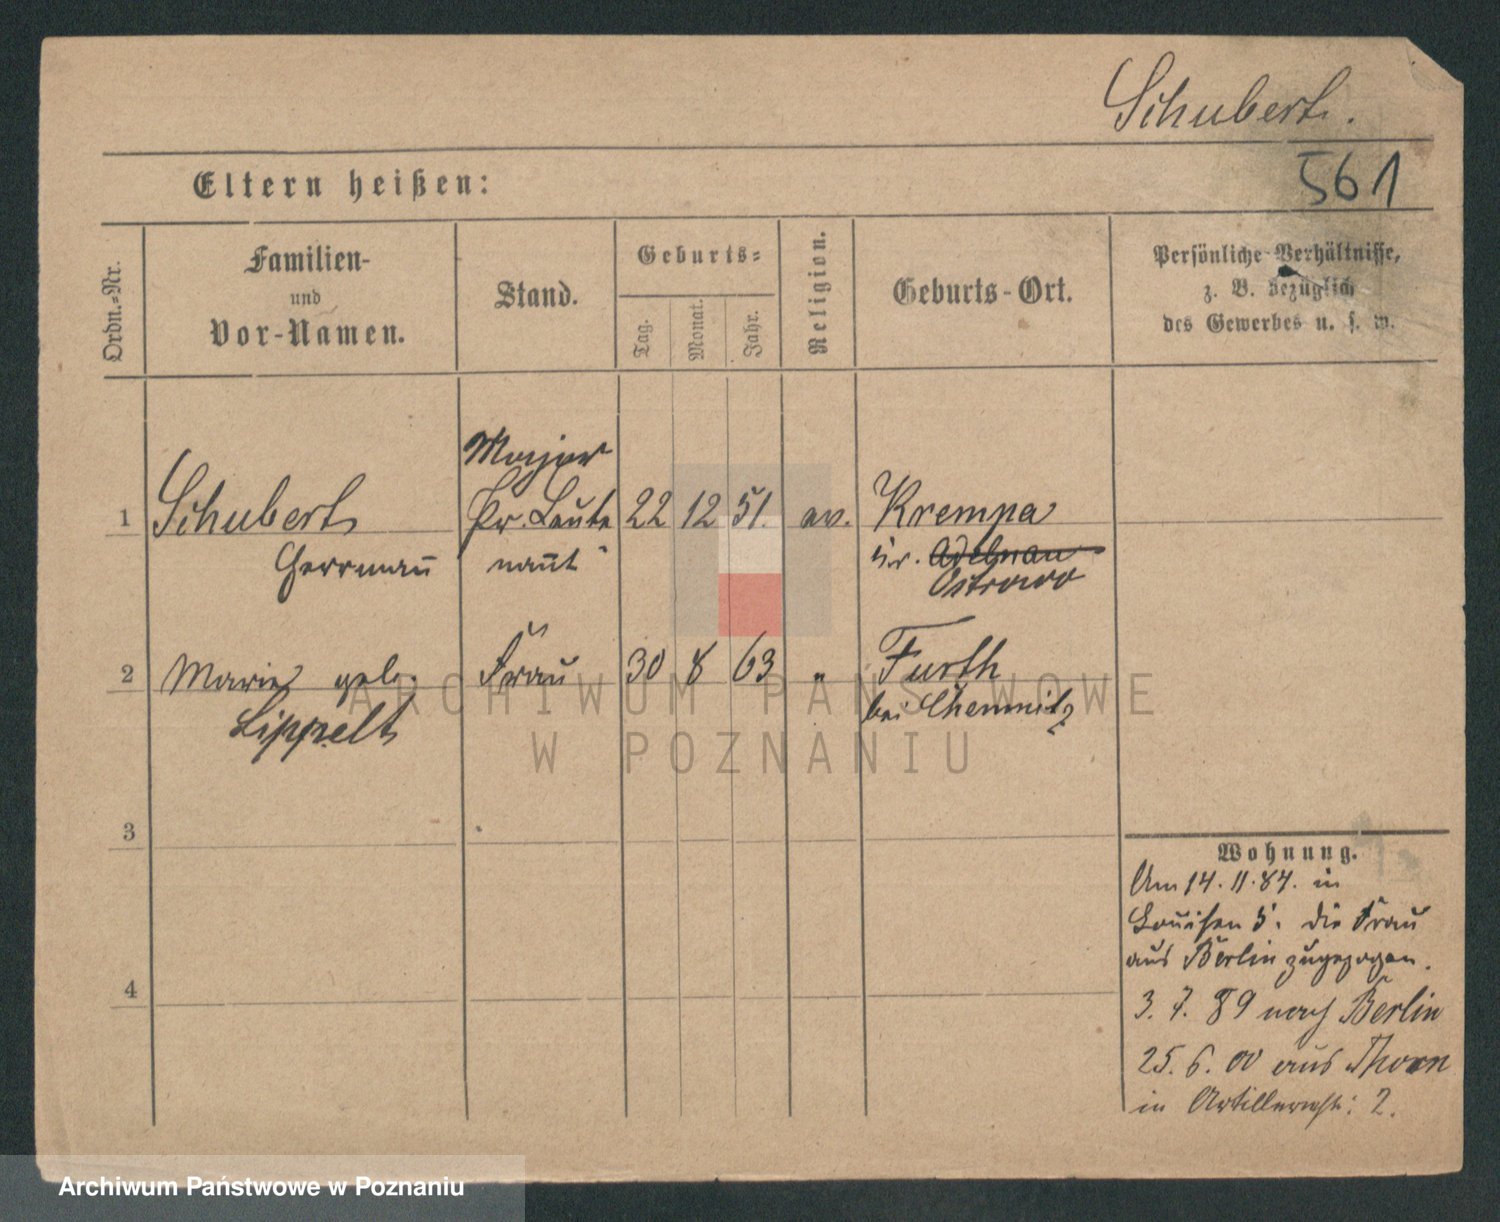 Schubert.
Eltern heißen:
561
Ordn.-Nr.
Familien-
und
Vor-Namen.
Stand.
Geburts-
Tag.
Monat.
Jahr.
Religion.
Geburts-Ort.
Persönliche Verhältnisse,
z. B. bezüglich
des Gewerbes u. s. w.
Major
1 Schubert Pr. Leute 22 12 51. ev. Krempa
Herrmann nant Kr. Adelnau
Ostrowo
2 Marie geb. Frau 30 8 63 " Furth
Lippelt bei Chemnitz
3
4
Wohnung.
Am 14.11.87. in
Louisen 5. die Frau
aus Berlin zugezogen.
3. 7. 89 nach Berlin
25. 6. 00 aus Thorn
in Artilleriestr: 2.
ARCHIWUM PAŃSTWOWE
W POZNANIU
Archiwum Państwowe w Poznaniu